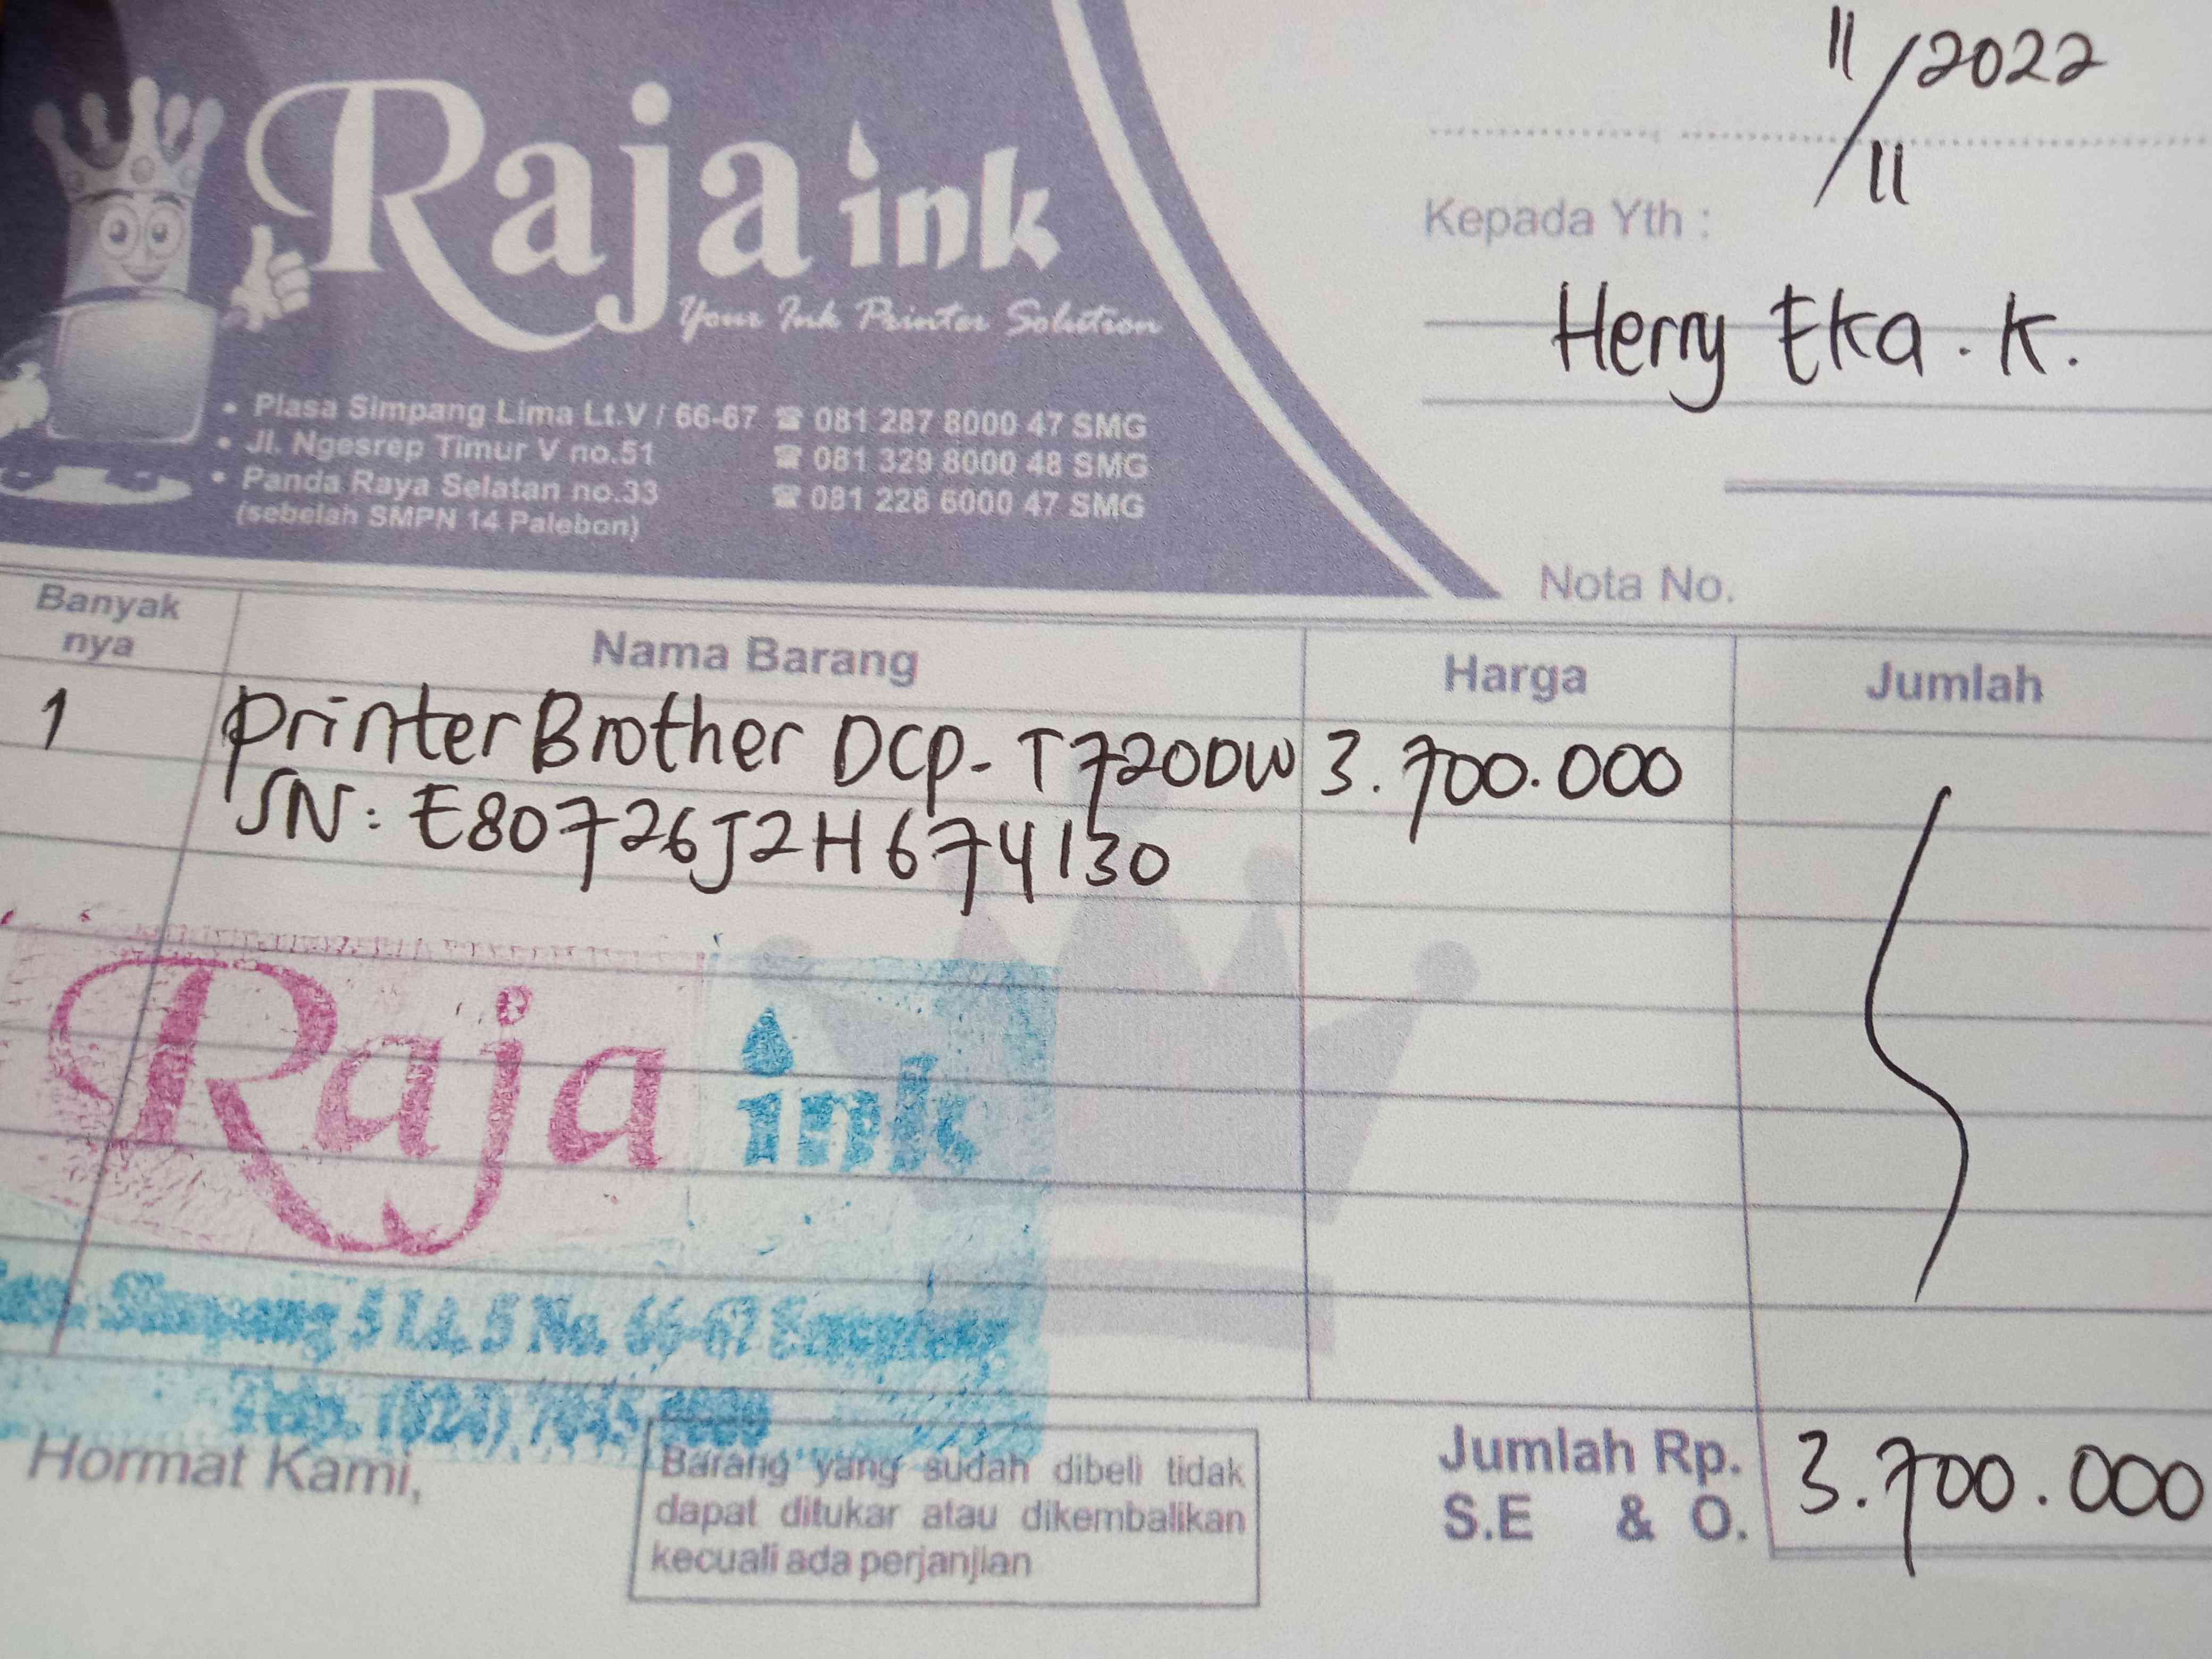 Raja ink
Your Ink Printer Solution
• Plasa Simpang Lima Lt.V / 66-67 ☎ 081 287 8000 47 SMG
• Jl. Ngesrep Timur V no.51 ☎ 081 329 8000 48 SMG
• Panda Raya Selatan no.33 ☎ 081 228 6000 47 SMG
(sebelah SMPN 14 Palebon)
11/11/2022
Kepada Yth :
Herry Eka . K.
Nota No.
Banyak nya Nama Barang Harga Jumlah
1 Printer Brother DCP-T720DW 3.700.000
SN: E80726J2H674130
Raja ink
Simpang 5 Lt. 5 No. 66-67
Telp. (024)
Hormat Kami,
Barang yang sudah dibeli tidak
dapat ditukar atau dikembalikan
kecuali ada perjanjian
Jumlah Rp. 3.700.000
S.E & O.